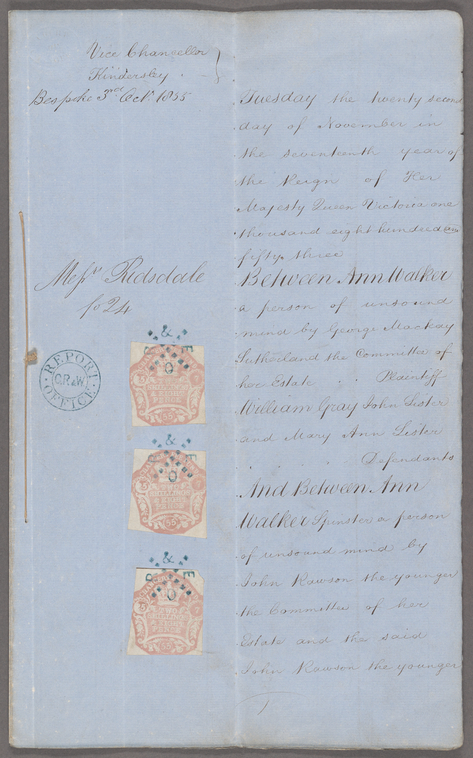 Vice Chancellor
Kindersley
Bespoke 3rd Oct 1855
Messrs Ridsdale
fo 24
REPORT OFFICE
C.R. & W.
Tuesday the twenty second
day of November in
the seventeenth year of
the Reign of Her
Majesty Queen Victoria one
thousand eight hundred and
fifty three
Between Ann Walker
a person of unsound
mind by George Mackay
Sutherland the Committee of
her Estate . . Plaintiff
William Gray John Lister
and Mary Ann Lister
. . . Defendants
And Between Ann
Walker Spinster a person
of unsound mind by
John Rawson the younger
the Committee of her
Estate and the said
John Rawson the younger